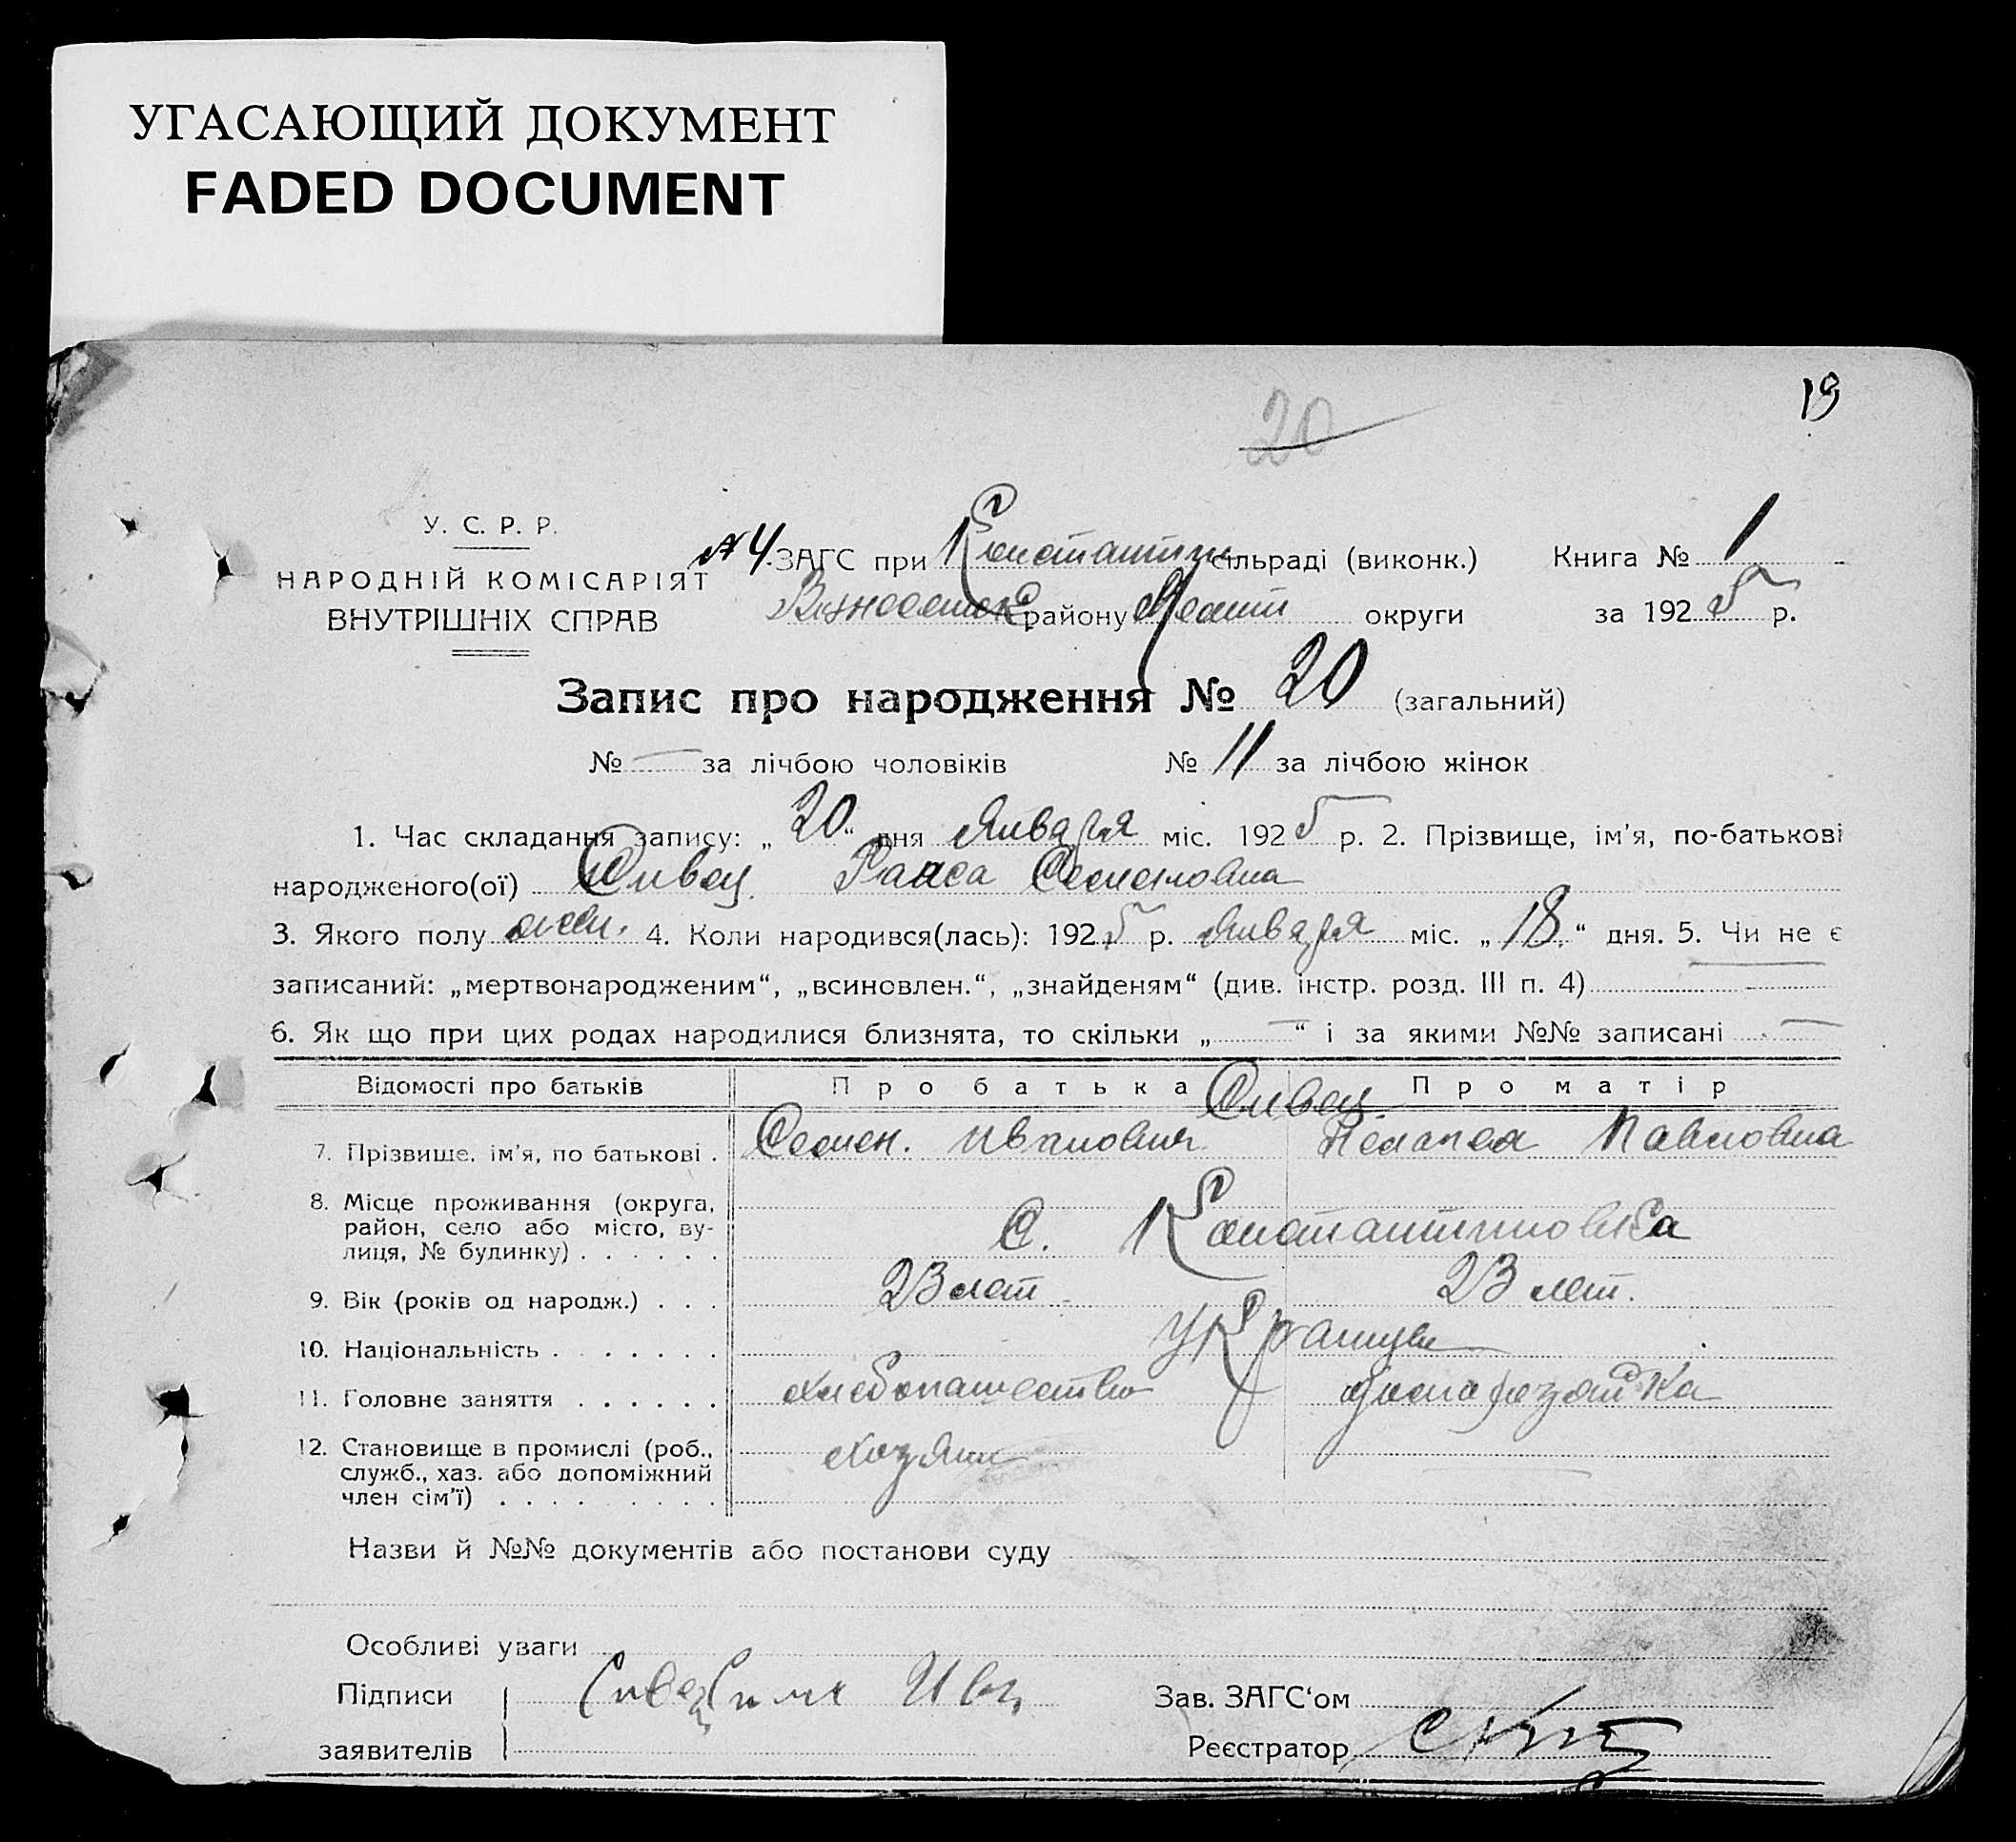 УГАСАЮЩИЙ ДОКУМЕНТ
FADED DOCUMENT
19
20
У. С. Р. Р.
НАРОДНІЙ КОМІСАРІЯТ
ВНУТРІШНІХ СПРАВ
№ 4 ЗАГС при Константин сільраді (виконк.) Книга № 1
району округи за 1925 р.
Запис про народження № 20 (загальний)
№ — за лічбою чоловіків № 11 за лічбою жінок
1. Час складання запису: „20“ дня Января міс. 1925 р. 2. Прізвище, ім'я, по-батькові
народженого(ої) Сивец Раиса Семеновна
3. Якого полу жен. 4. Коли народився(лась): 1925 р. Января міс. „18“ дня. 5. Чи не є
записаний: „мертвонародженим“, „всиновлен.“, „знайденям“ (див. інстр. розд. III п. 4) —
6. Як що при цих родах народилися близнята, то скільки „—“ і за якими №№ записані —
Відомості про батьків Про батька Про матір
Сивец
7. Прізвище, ім'я, по батькові . Семен Иванович Пелагея Павловна
8. Місце проживання (округа,
район, село або місто, ву-
лиця, № будинку) . . . . . . С. Константиновка
9. Вік (років од народж.) . . . 23 лет 23 лет.
10. Національність . . . . . . .
11. Головне заняття . . . . . . хлебопашество домохозяйка
12. Становище в промислі (роб.,
служб., хаз. або допоміжний
член сім'ї) . . . . . . . . . хозяин
Назви й №№ документів або постанови суду
Особливі уваги
Підписи Сивец Зав. ЗАГС'ом
заявителів Реєстратор